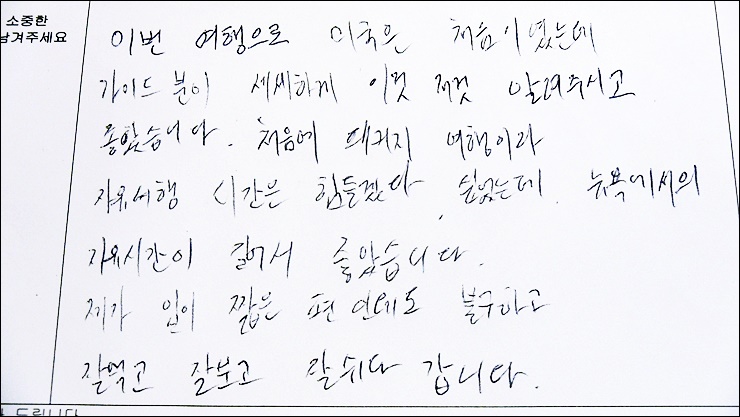 소중한
남겨주세요
이번 여행으로 미국은 처음이였는데
가이드 분이 세세하게 이것 저것 알려주시고
좋았습니다. 처음에 패키지 여행이라
자유여행 시간은 힘들겠다 싶었는데 뉴욕에서의
자유시간이 길어서 좋았습니다.
제가 입이 짧은 편 인데도 불구하고
잘먹고 잘보고 잘쉬다 갑니다.
드립니다